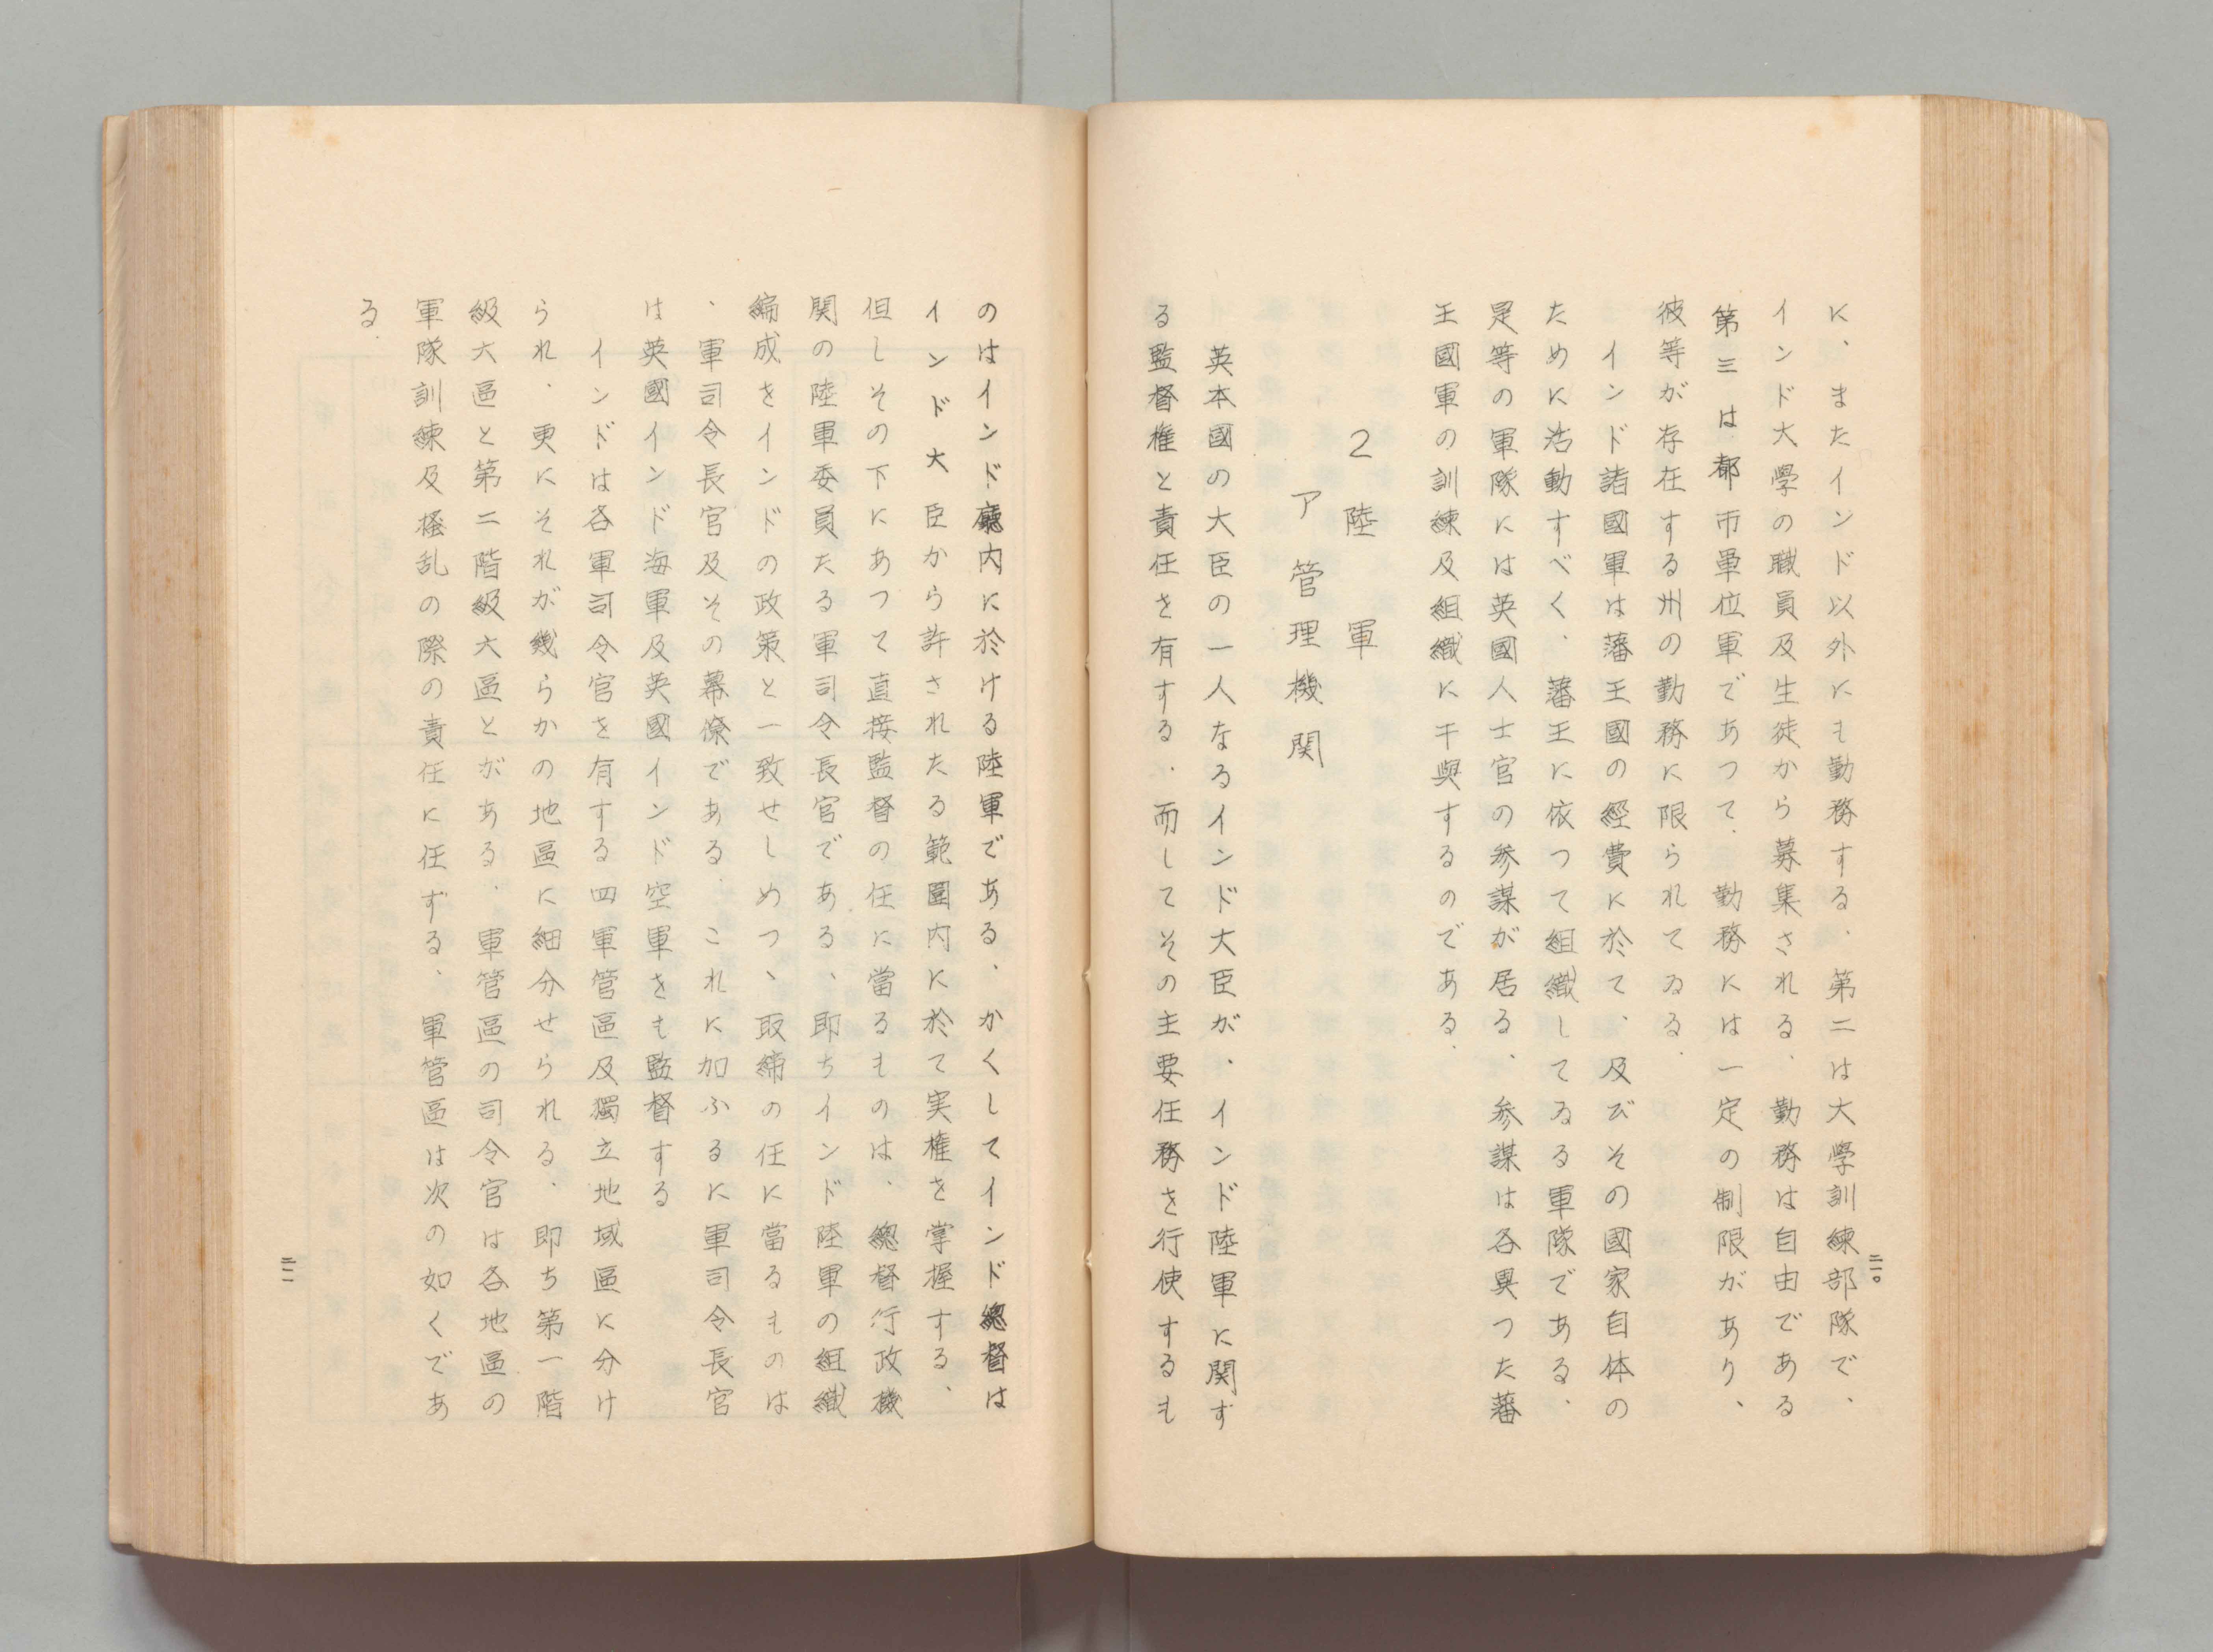 に、またインド以外にも勤務する、第二は大學訓練部隊で、
インド大學の職員及生徒から募集される、勤務は自由である
第三は都市軍位軍であつて、勤務には一定の制限があり、
彼等が存在する州の勤務に限られてゐる、
インド諸國軍は藩王國の經費に於て、及びその國家自体の
ために活動すべく、藩王に依つて組織してゐる軍隊である、
是等の軍隊には英國人士官の参謀が居る、参謀は各異つた藩
王國軍の訓練及組織に干與するのである、
2 陸軍
ア 管理機関
英本國の大臣の一人なるインド大臣が、インド陸軍に関す
る監督権と責任を有する、而してその主要任務を行使するも
二一〇
のはインド廳内に於ける陸軍である、かくしてインド總督は
インド大臣から許されたる範圍内に於て実権を掌握する、
但しその下にあつて直接監督の任に當るものは、總督行政機
関の陸軍委員たる軍司令長官である、即ちインド陸軍の組織
編成をインドの政策と一致せしめつヽ、取締の任に當るものは
、軍司令長官及その幕僚である、これに加ふるに軍司令長官
は英國インド海軍及英國インド空軍をも監督する
インドは各軍司令官を有する四軍管區及獨立地域區に分け
られ、更にそれが幾らかの地區に細分せられる、即ち第一階
級大區と第二階級大區とがある、軍管區の司令官は各地區の
軍隊訓練及擾乱の際の責任に任ずる、軍管區は次の如くであ
る、
二一一